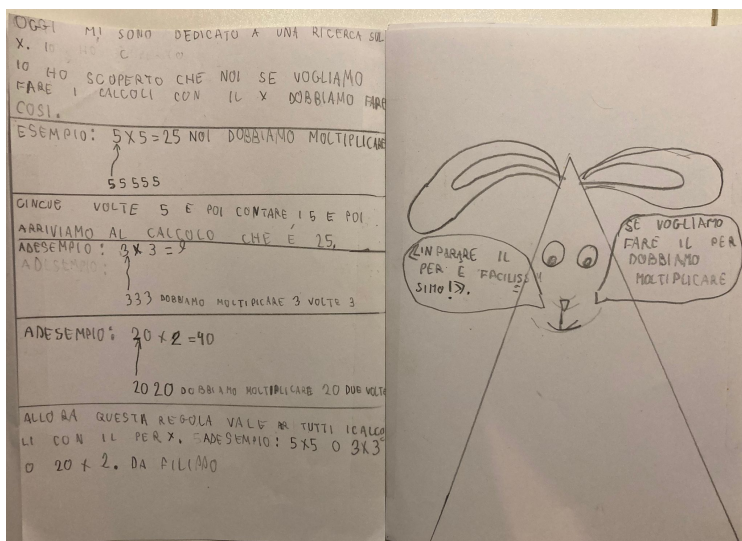 OGGI MI SONO DEDICATO A UNA RICERCA SUL
X. IO HO
IO HO SCOPERTO CHE NOI SE VOGLIAMO
FARE I CALCOLI CON IL X DOBBIAMO FARE
COSI.
ESEMPIO: 5X5=25 NOI DOBBIAMO MOLTIPLICARE
55555
CINCUE VOLTE 5 E POI CONTARE I 5 E POI
ARRIVIAMO AL CALCOLO CHE É 25.
ADESEMPIO: 3X3=9
ADESEMPIO:
333 DOBBIAMO MOLTIPLICARE 3 VOLTE 3
ADESEMPIO: 20X2=40
20 20 DOBBIAMO MOLTIPLICARE 20 DUE VOLTE
ALLORA QUESTA REGOLA VALE TUTTI I CALCO
LI CON IL PER X. ADESEMPIO: 5X5 O 3X3
O 20 X 2. DA FILIPPO
LINPARARE IL
PER E FACILIS
SIMO!
SE VOGLIAMO
FARE IL PER
DOBBIAMO
MOLTIPLICARE